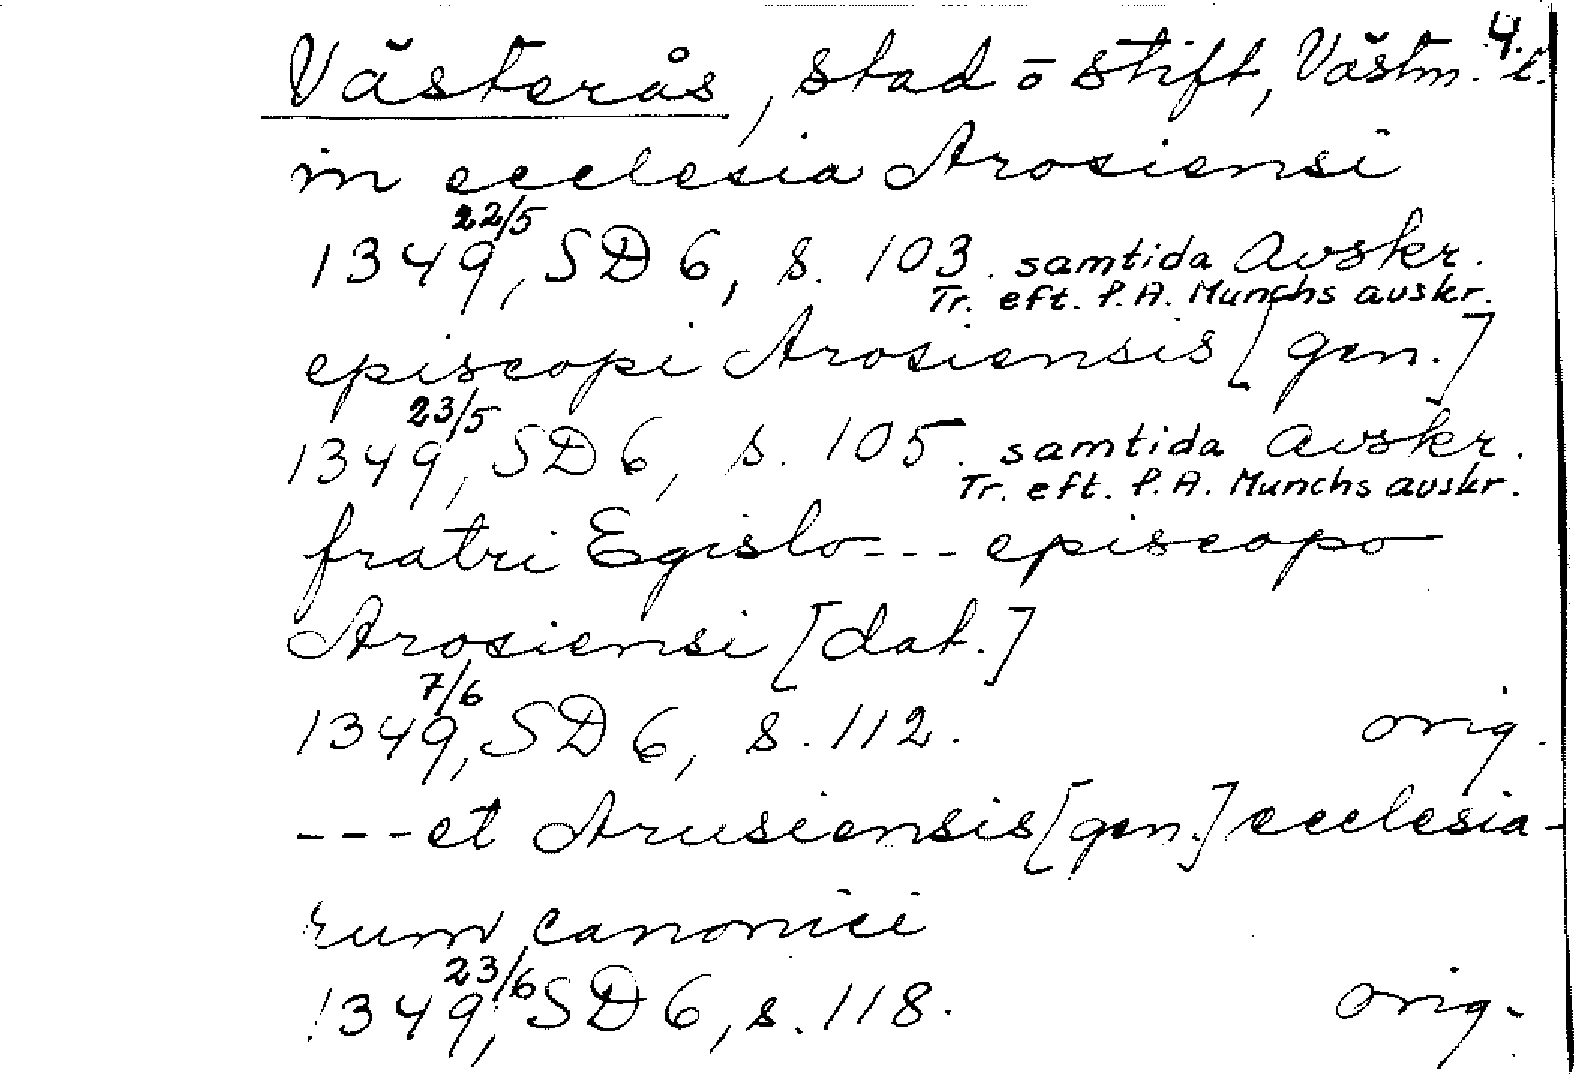 4.
Västerås, stad o stift, Västm. l.
in ecclesia Arosiensi
1349 22/5, SD 6, s. 103. samtida Avskr.
Tr. eft. P.A. Munchs avskr.
episcopi Arosiensis [gen.]
1349 23/5, SD 6, s. 105. samtida Avskr.
Tr. eft. P.A. Munchs avskr.
fratri Egislo --- episcopo
Arosiensi [dat.]
1349 7/6, SD 6, s. 112. orig.
--- et Arusiensis [gen.] ecclesia-
rum canonici
1349 23/6, SD 6, s. 118. orig.